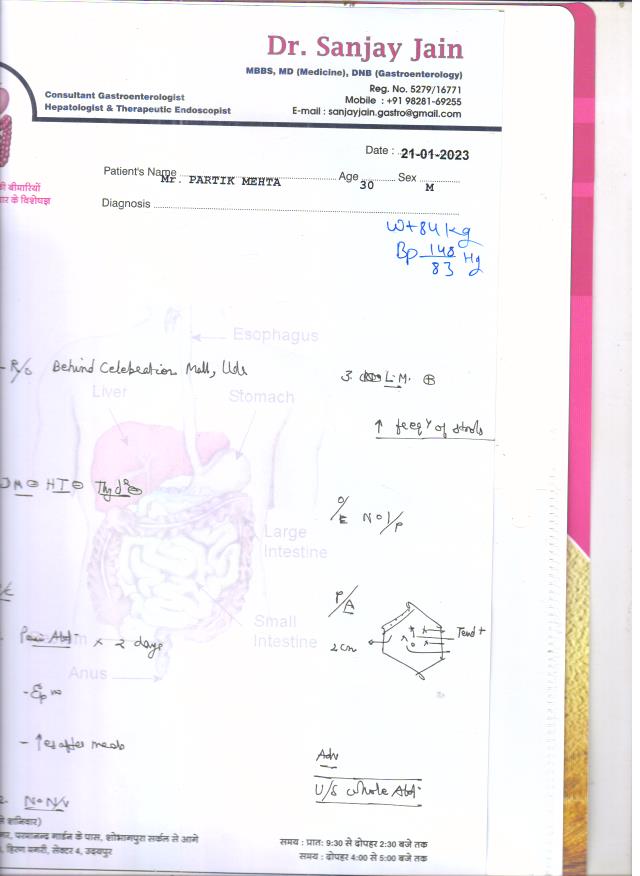 Dr. Sanjay Jain
MBBS, MD (Medicine), DNB (Gastroenterology)
Reg. No. 5279/16771
Mobile : +91 98281-69255
E-mail : sanjayjain.gastro@gmail.com
Consultant Gastroenterologist
Hepatologist & Therapeutic Endoscopist
की बीमारियों
के विशेषज्ञ
Date : 21-01-2023
Patient's Name Mr. PARTIK MEHTA Age 30 Sex M
Diagnosis
Wt 84 kg
Bp 148/83 Hg
Esophagus
Liver
Stomach
Large
Intestine
Small
Intestine
Anus
R/o Behind Celebration Mall, Udr
DM ⊖ HT ⊖ Thyd ⊖
Pain Abd x 2 days
- ↑es after meals
2. No N/V
3. L.M. ⊕
↑ freqy of stools
O/E
P/A
2 cm
Tend +
Adv
U/S whole Abd
शनिवार)
परमानन्द गार्डन के पास, शोभागपुरा सर्कल से आगे
हिरण मगरी, सेक्टर 4, उदयपुर
समय : प्रातः 9:30 से दोपहर 2:30 बजे तक
समय : दोपहर 4:00 से 5:00 बजे तक